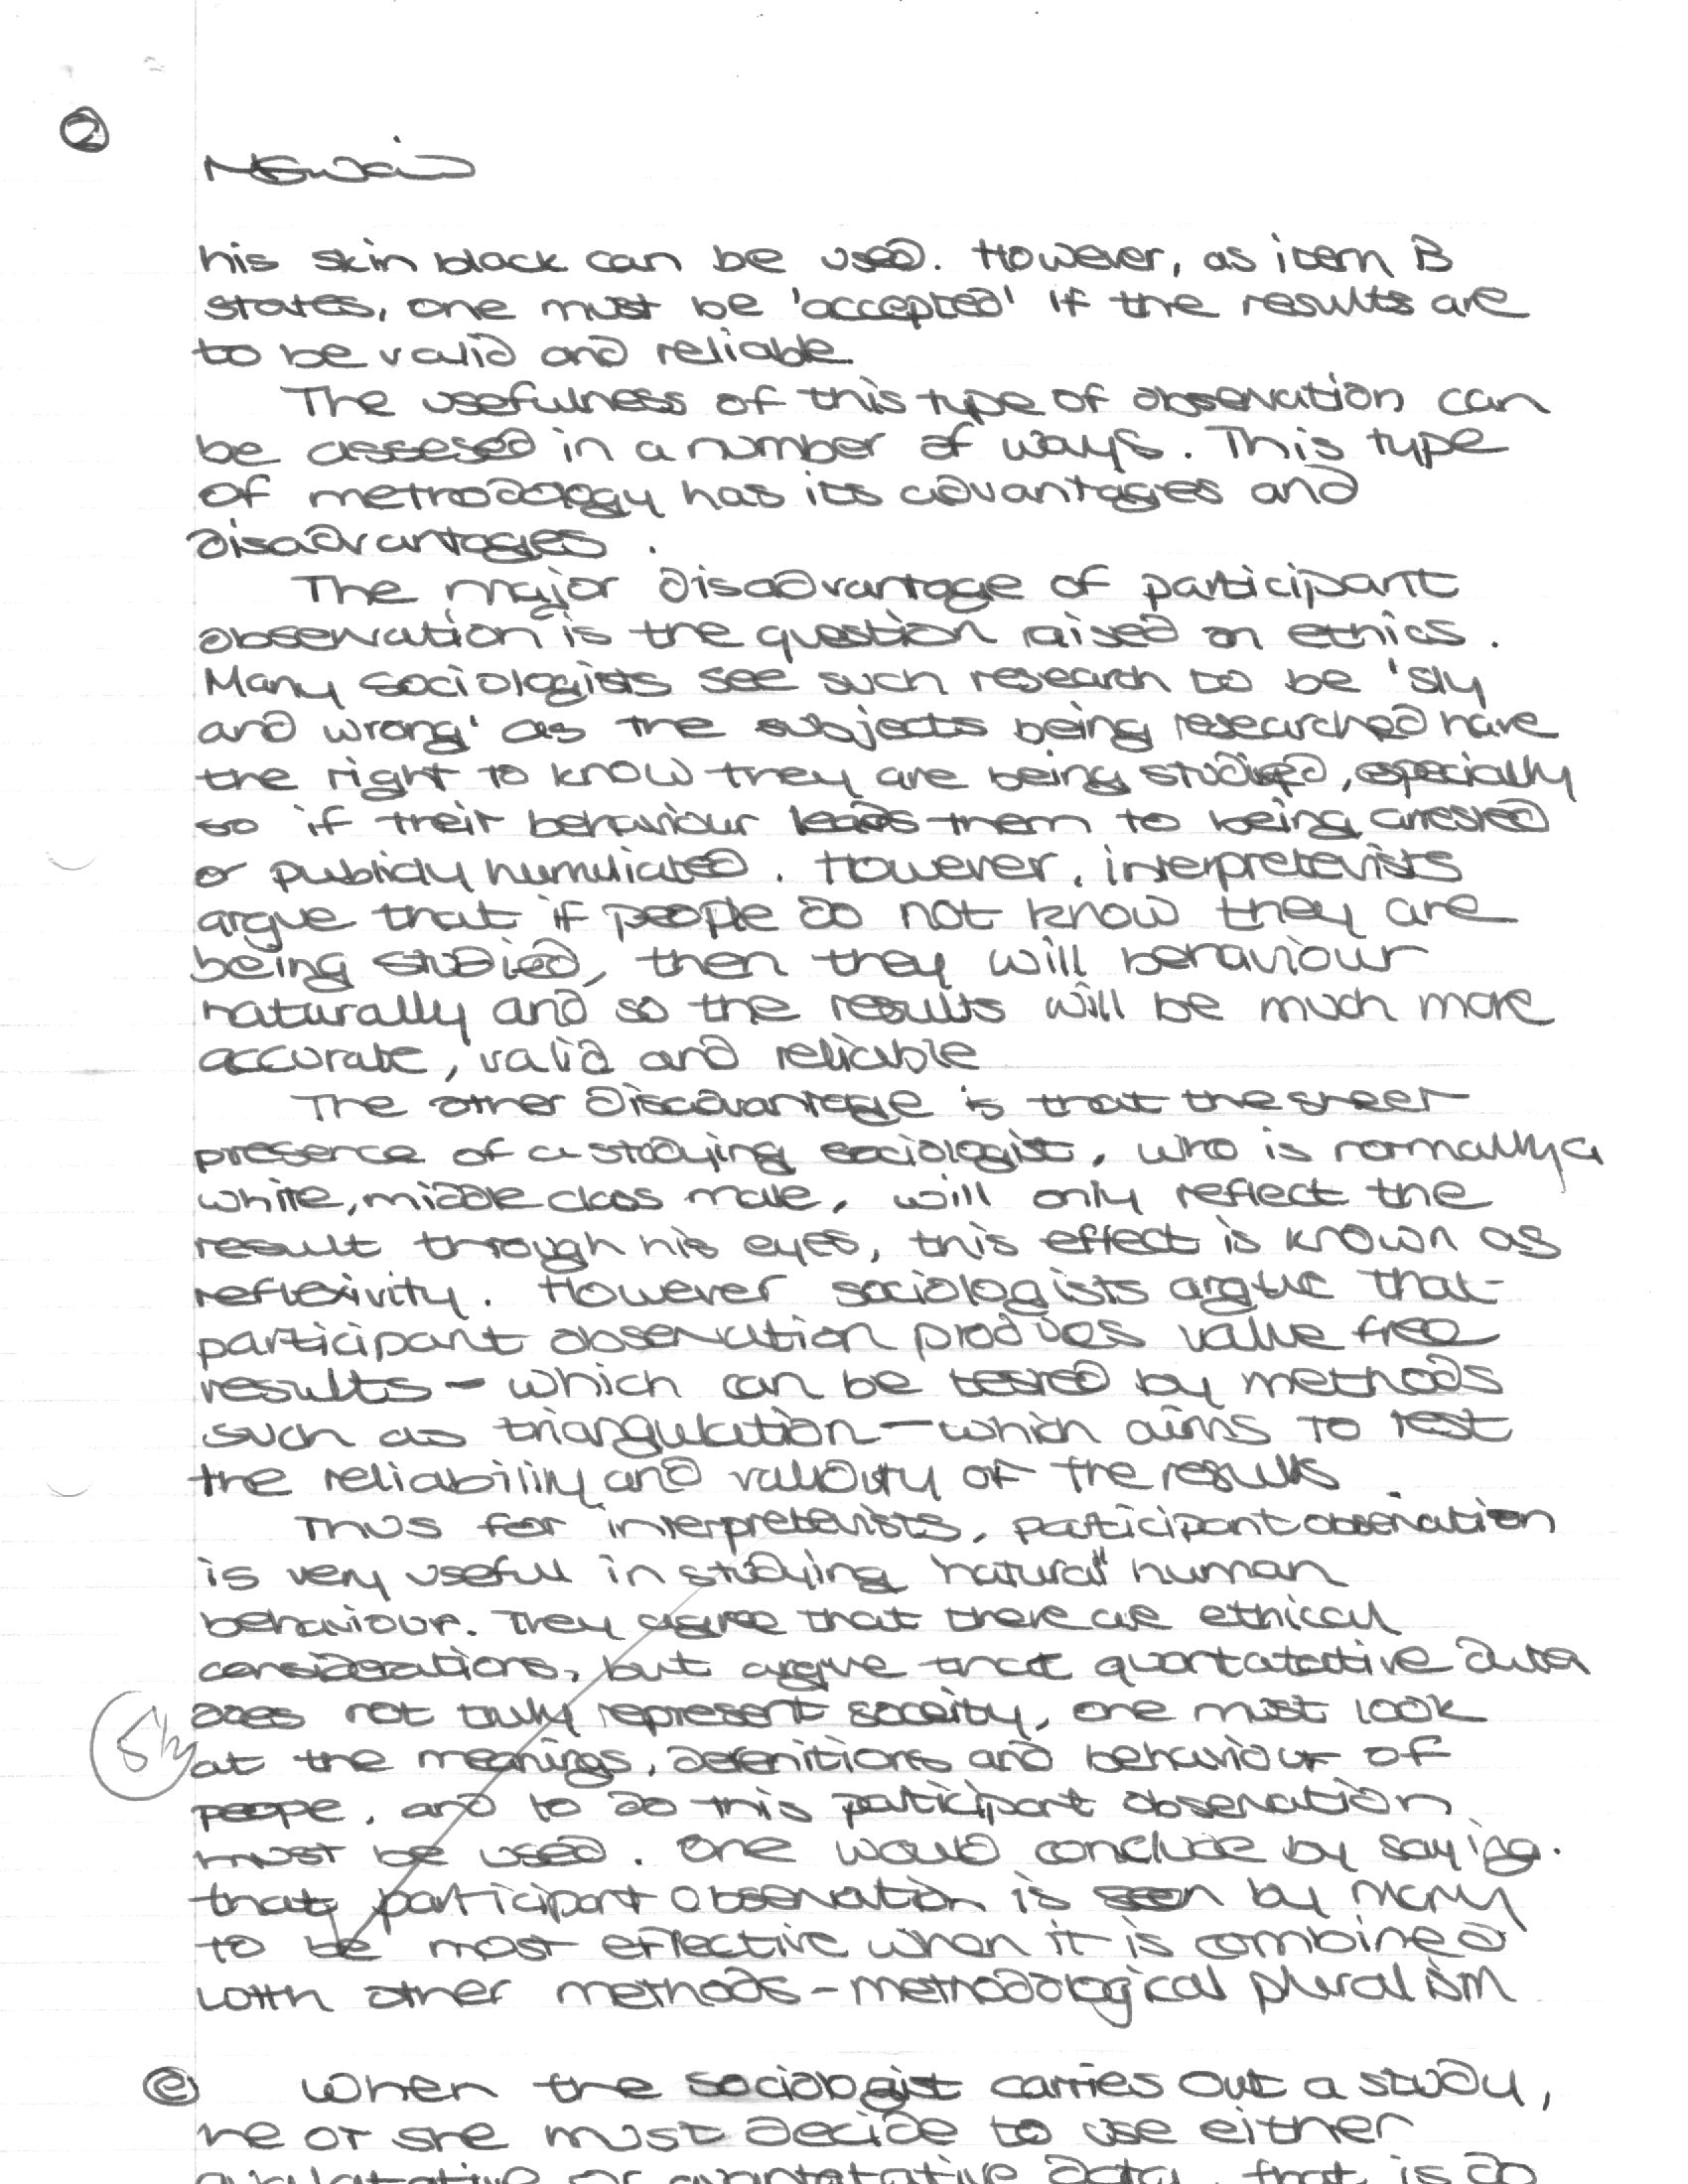 2
his skin black can be used. However, as item B
states, one must be 'accepted' if the results are
to be valid and reliable.
The usefulness of this type of observation can
be assesed in a number of ways. This type
of metrodology has its advantages and
disadvantages.
The major disadvantage of participant
observation is the question raised on ethics.
Many sociologists see such research to be 'sly
and wrong' as the subjects being researched have
the right to know they are being studied, especially
so if their behaviour leads them to being arrested
or publicly humiliated. However, interpretevists
argue that if people do not know they are
being studied, then they will behaviour
naturally and so the results will be much more
accurate, valid and reliable
The other disadvantage is that the sheer
presence of a studying sociologist, who is normally a
white, middle class male, will only reflect the
result through his eyes, this effect is known as
reflexivity. However sociologists argue that
participant observation produces value free
results - which can be tested by methods
such as triangulation - which aims to test
the reliability and validity of the results.
Thus for interpretevists, participant observation
is very useful in studying 'natural' human
behaviour. They agree that there are ethical
considerations, but argue that quantatative data
does not truly represent soceity, one must look
at the meanings, defenitions and behaviour of
peope, and to do this participant observation
must be used. One would conclude by saying
that participant observation is seen by many
to be most effective when it is combined
with other methods - methodological pluralism
e When the sociologist carries out a study,
he or she must decide to use either
qualatative or quantatative data, that is do